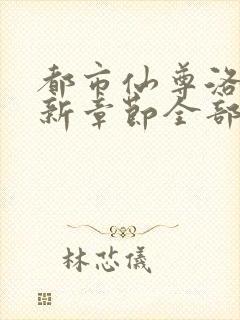 都市仙尊洛
新章节全部
林芯儀